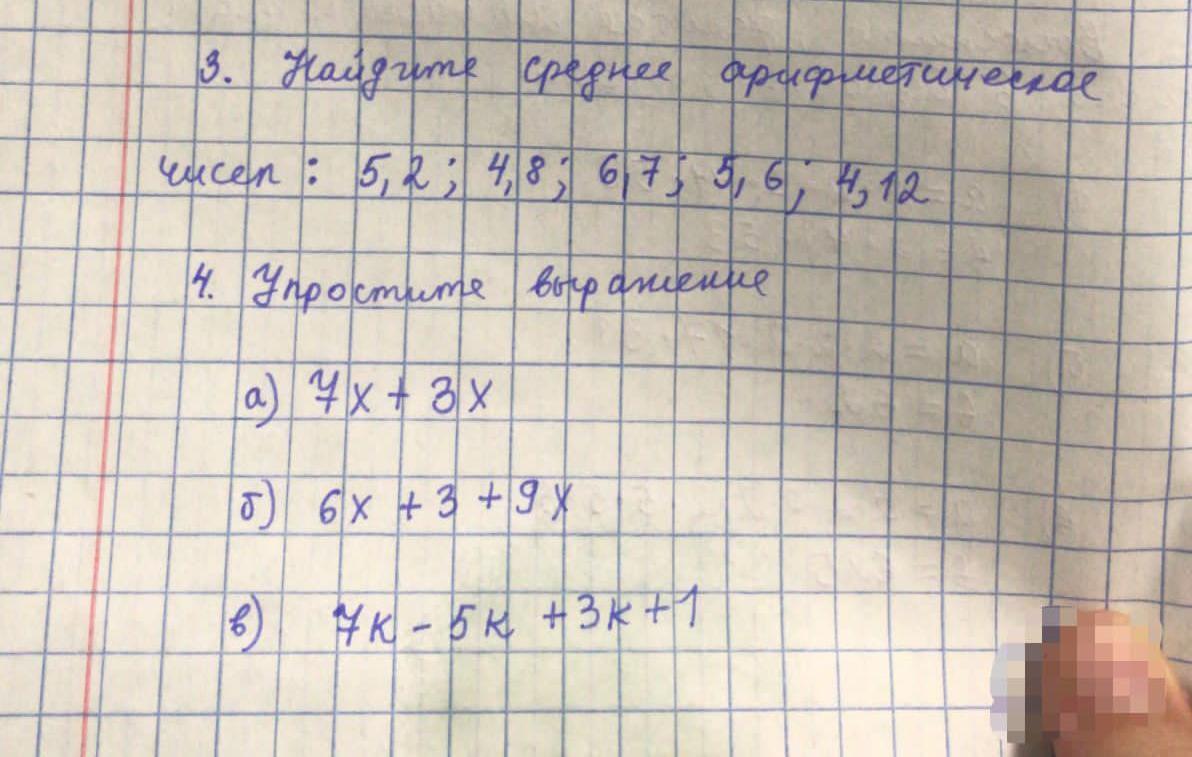 3. Найдите среднее арифметическое
чисел : 5,2; 4,8; 6,7; 5,6; 4,12
4. Упростите выражение
а) 7x + 3x
б) 6x + 3 + 9x
в) 7к - 5к + 3к + 1